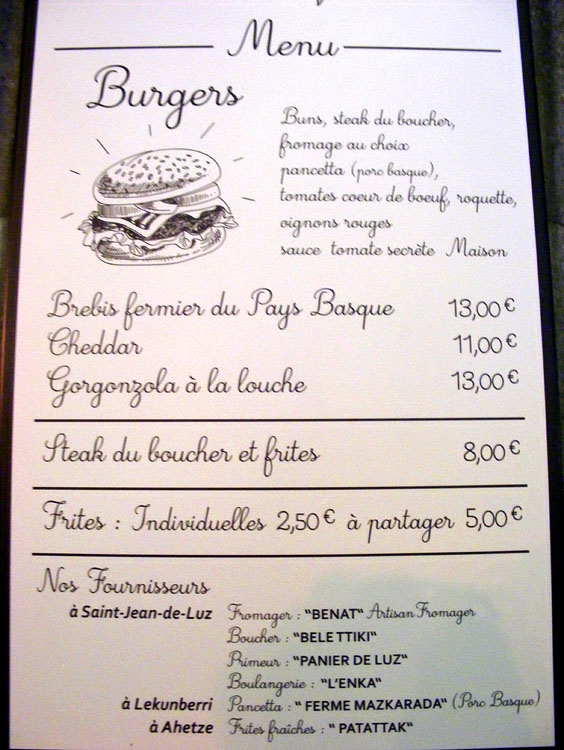 Menu
Burgers
Buns, steak du boucher,
fromage au choix
pancetta (porc basque),
tomates coeur de boeuf, roquette,
oignons rouges
sauce tomate secrète Maison
Brebis fermier du Pays Basque 13,00€
Cheddar 11,00€
Gorgonzola à la louche 13,00€
Steak du boucher et frites 8,00€
Frites : Individuelles 2,50€ à partager 5,00€
Nos Fournisseurs
à Saint-Jean-de-Luz Fromager : "BENAT" Artisan Fromager
Boucher : "BELE TTIKI"
Primeur : "PANIER DE LUZ"
Boulangerie : "L'ENKA"
à Lekunberri Pancetta : " FERME MAZKARADA" (Porc Basque)
à Ahetze Frites fraîches : " PATATTAK"